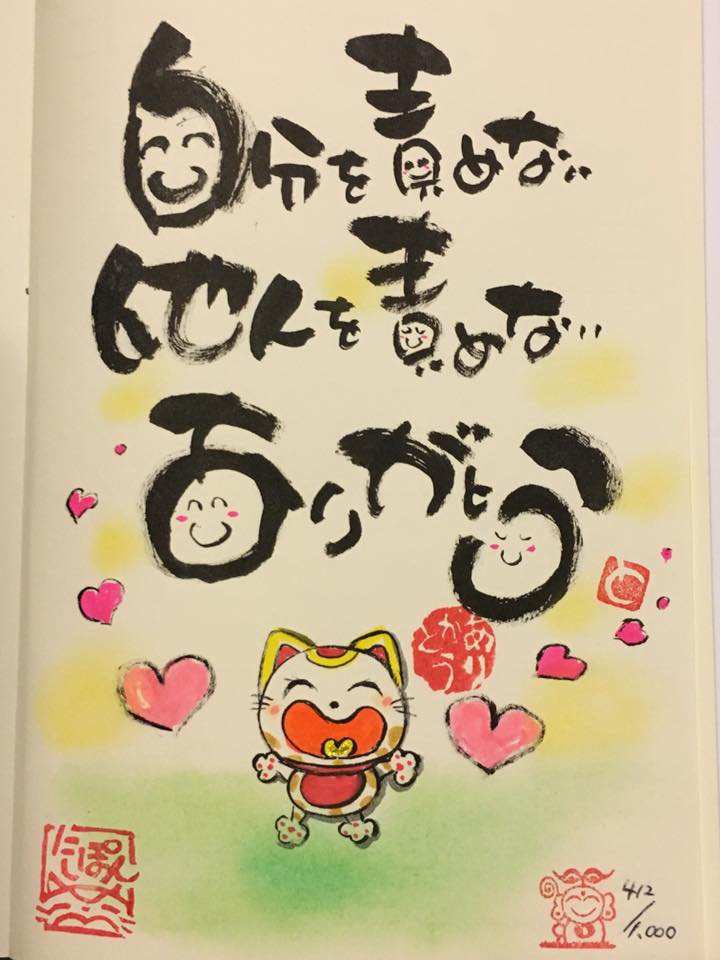 自分を責めない
他人を責めない
ありがとう
と
ありがとう
412
/1,000